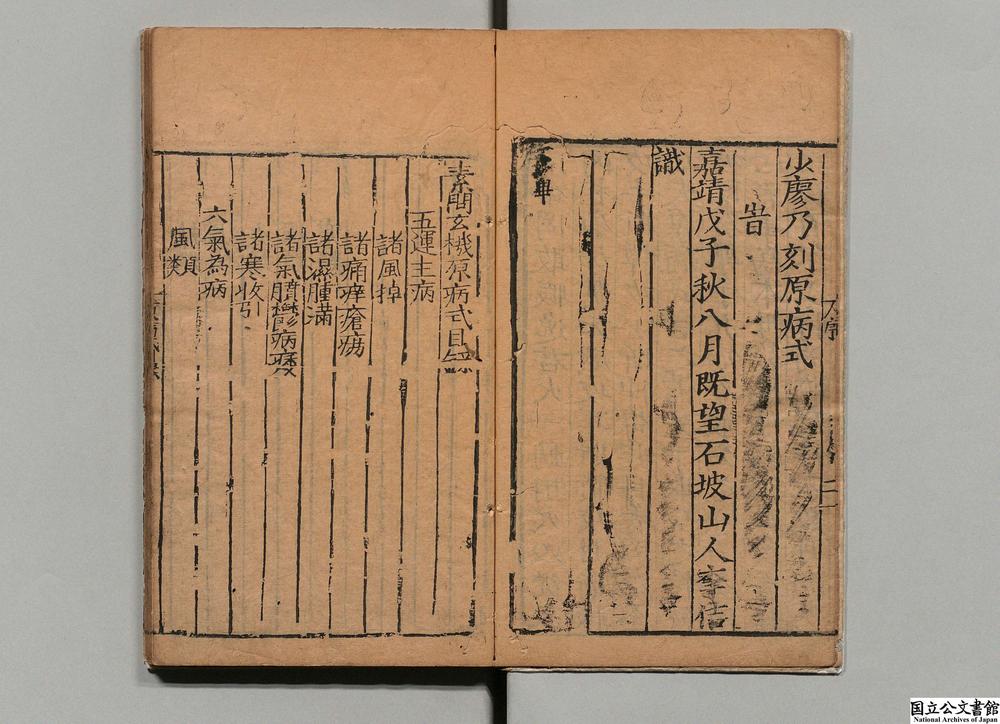 少廖乃刻原病式
旹
嘉靖戊子秋八月既望石坡山人李佶
識
畢
素問玄機原病式目録
五運主病
諸風掉
諸痛痒瘡瘍
諸濕腫滿
諸氣膹鬱病痿
諸寒收引
六氣為病
風類
国立公文書館
National Archives of Japan